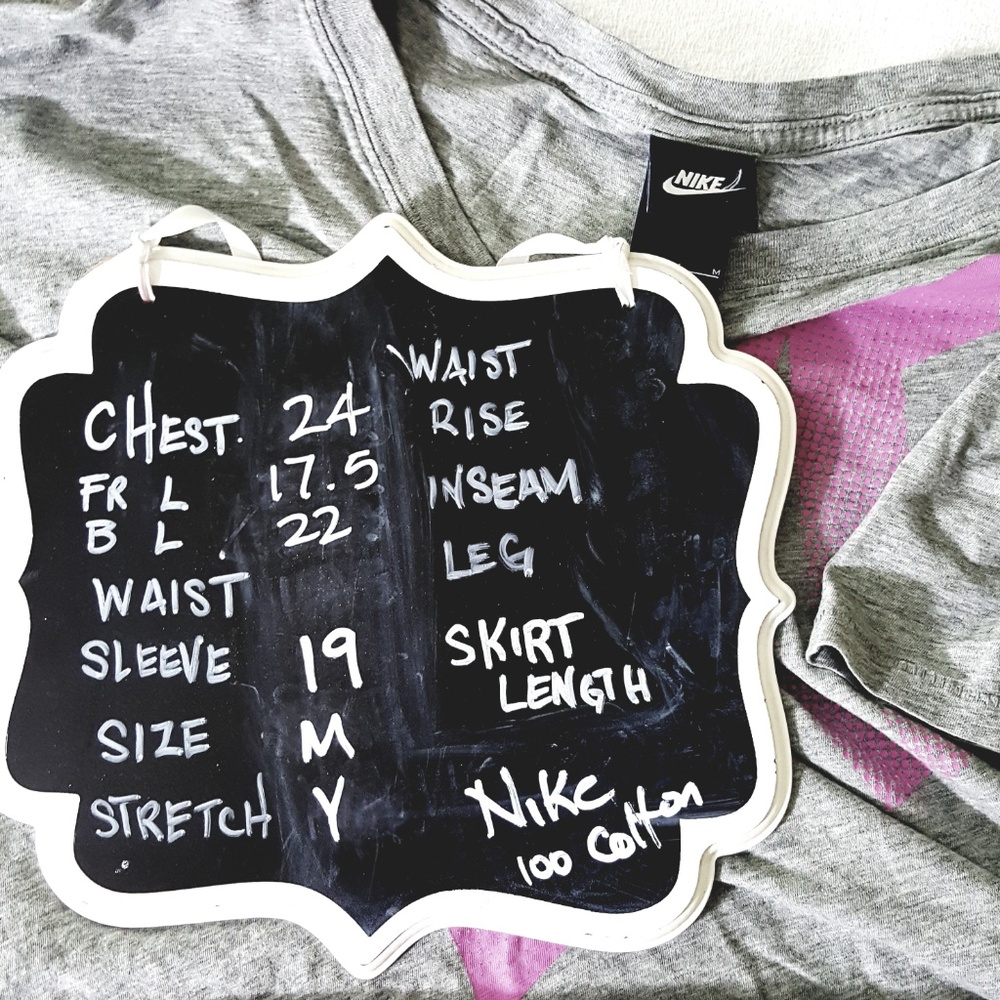 NIKE
M
CHEST. 24
FR L 17.5
B L . 22
WAIST
SLEEVE 19
SIZE M
STRETCH Y
WAIST
RISE
INSEAM
LEG
SKIRT
LENGTH
NIKE
100 Cotton